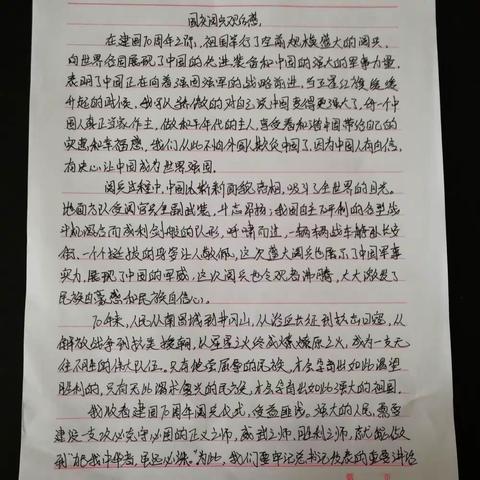 国庆阅兵观后感
在建国70周年之际,祖国举行了空前规模盛大的阅兵,
向世界各国展现了中国的先进装备和中国的强大的军事力量,
表明了中国正在向着强国强军的战略前进,当五星红旗缓缓
升起的时候,我可以骄傲的对自己说中国变得更强大了,每一个中
国人真正当家作主,做和平年代的主人,享受着和谐中国带给自己的
实惠和幸福感,我们从此不怕外国人欺负中国了,因为中国人有自信,
有决心让中国成为世界强国。
阅兵过程中,中国以崭新面貌亮相,吸引了全世界的目光。
地面方队受阅官兵全副武装,斗志昂扬,我国自主研制的各型战
斗机混合而成利剑般的队形,呼啸而过,一辆辆战车排成长
街,一个个挺拔的身姿让人敬佩,这次盛大阅兵也展示了中国军事
实力,展现了中国的军威,这次阅兵也令观者沸腾,大大激发了
民族自豪感和民族自信心。
70年来,人民从南昌城到井冈山,从长征到
解放战争到,从星星之火终成燎原之火,成为一支无
往不胜的伟大队伍。只有饱受屈辱的民族,才会导出如此渴望
胜利的,只有无比渴求复兴的民族,才会导出如此强大的祖国。
我收看建国70周年阅兵仪式,受益匪浅。强大的人民,需要
建设一支攻必克守必固的正义之师,威武之师,胜利之师,就能做
到"犯我中华者,虽远必诛。"为此,我们要牢记总书记发表的重要讲话